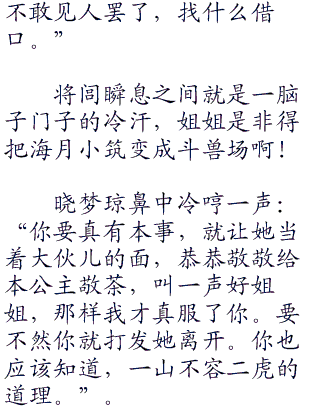 不敢见人罢了，找什么借
口。”
将闾瞬息之间就是一脑
子门子的冷汗，姐姐是非得
把海月小筑变成斗兽场啊！
晓梦琼鼻中冷哼一声：
“你要真有本事，就让她当
着大伙儿的面，恭恭敬敬给
本公主敬茶，叫一声好姐
姐，那样我才真服了你。要
不然你就打发她离开。你也
应该知道，一山不容二虎的
道理。”。